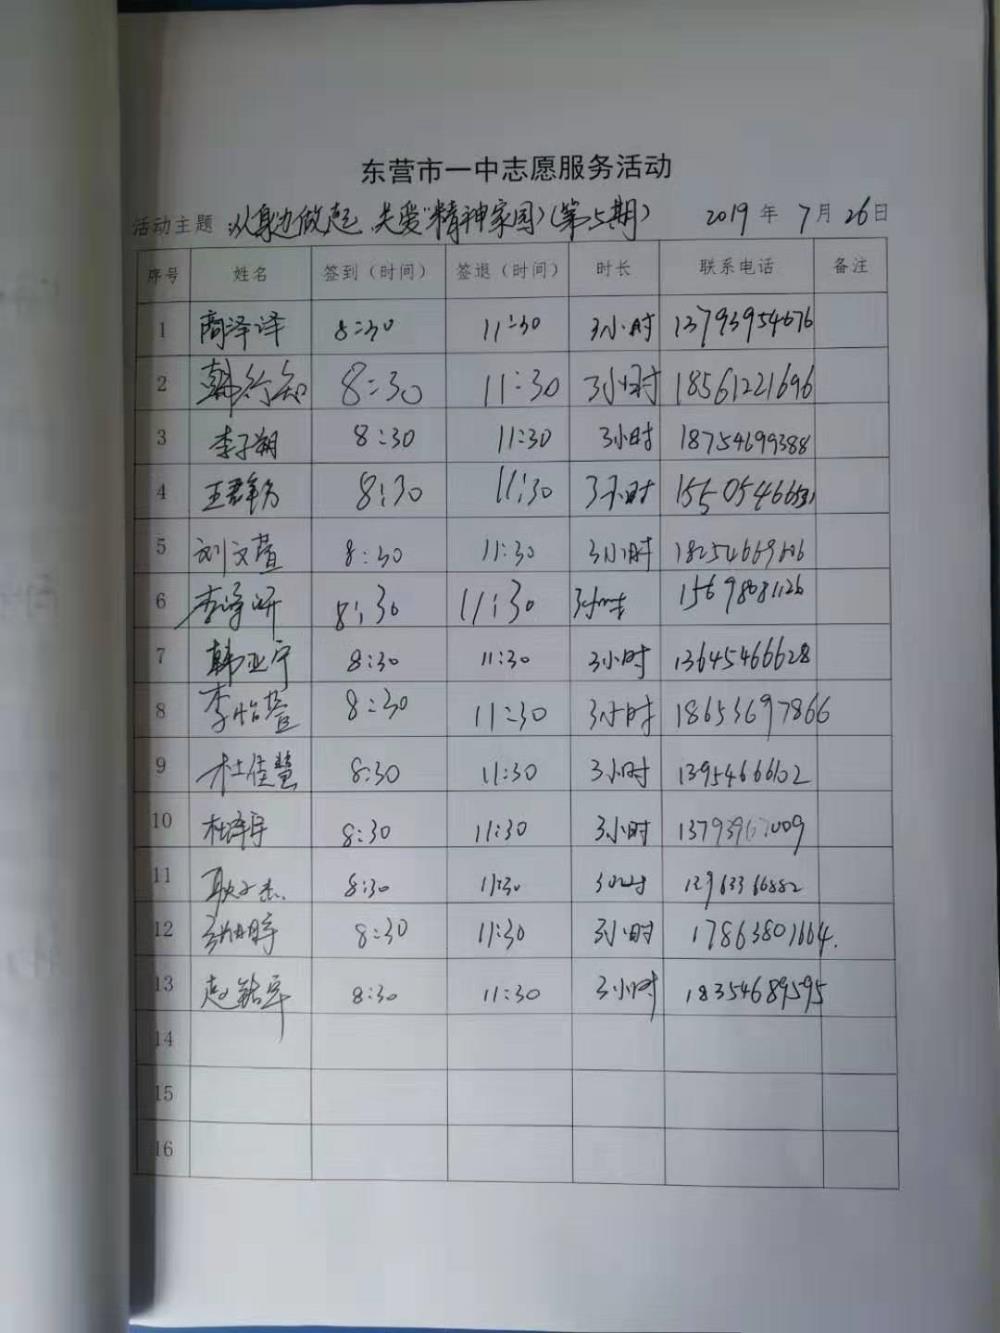 东营市一中志愿服务活动
活动主题 从身边做起,关爱“精神家园”(第五期) 2019年7月26日
序号 姓名 签到(时间) 签退(时间) 时长 联系电话 备注
1 商泽译 8:30 11:30 3小时 13793954676
2 韩行知 8:30 11:30 3小时 18561221696
3 李子朔 8:30 11:30 3小时 18754699388
4 8:30 11:30 3小时
5 刘文萱 8:30 11:30 3小时
6 8:30 11:30 3小时
7 韩亚宁 8:30 11:30 3小时 13645466628
8 李怡萱 8:30 11:30 3小时 18653697866
9 杜佳慧 8:30 11:30 3小时 13954666102
10 杜泽宇 8:30 11:30 3小时
11 8:30 11:30 3小时
12 8:30 11:30 3小时 17863801664.
13 赵铭军 8:30 11:30 3小时 18354689595
14
15
16